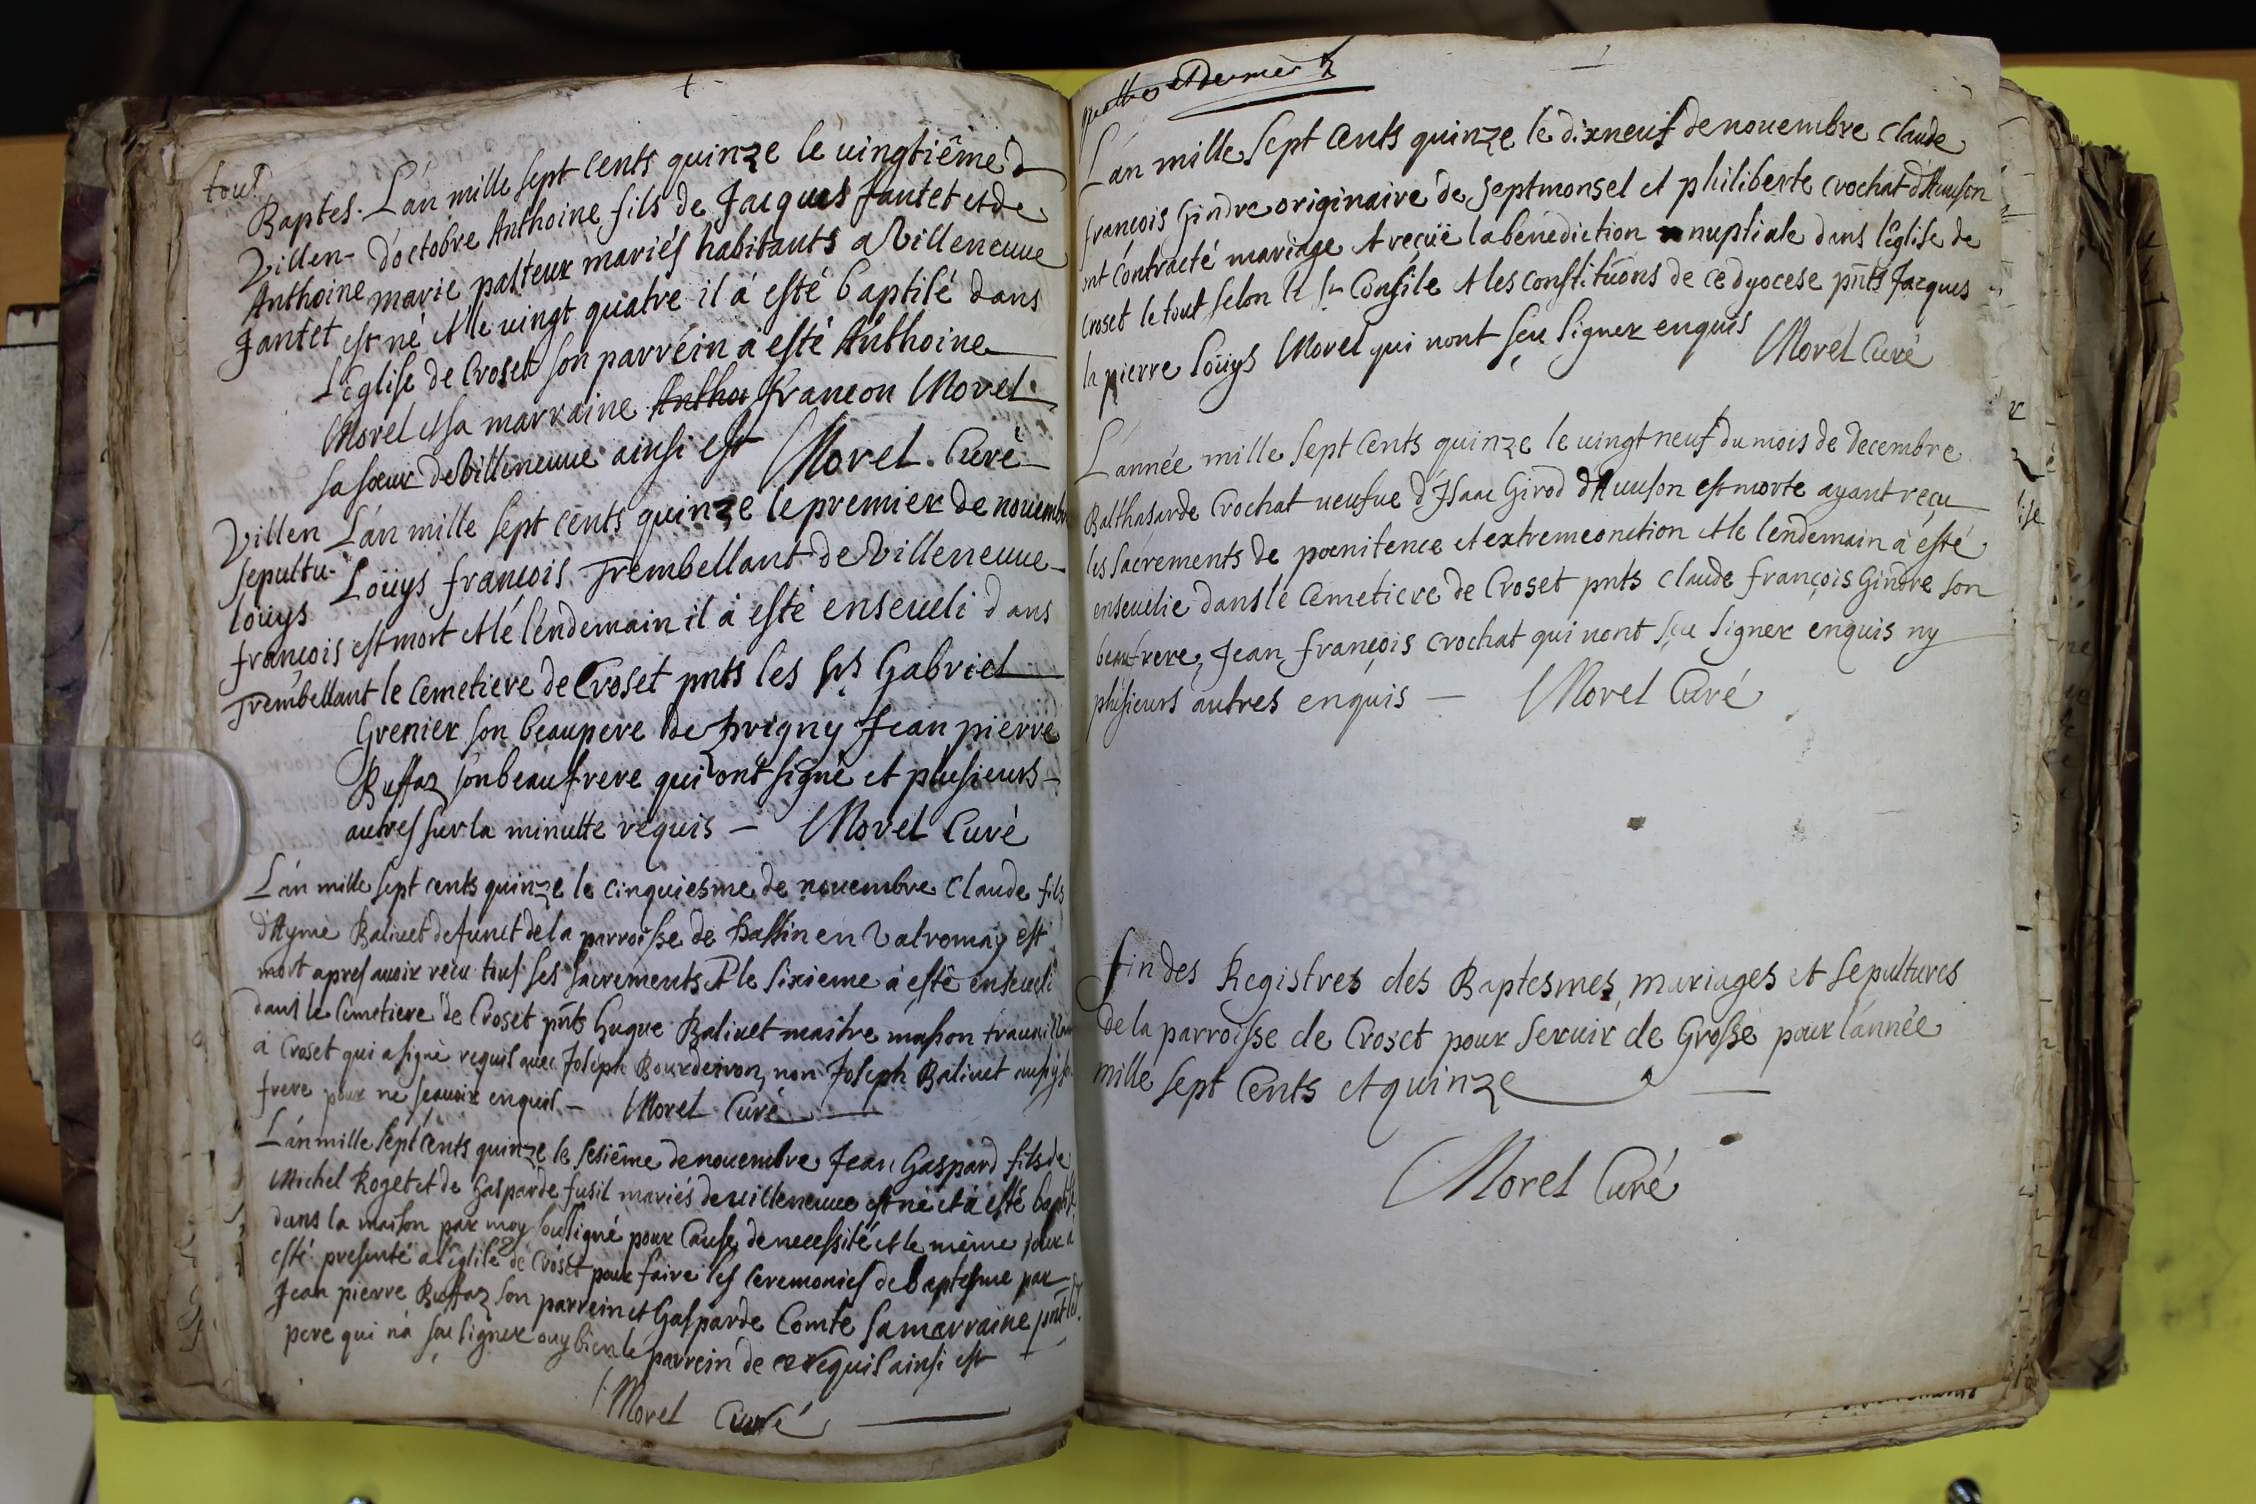 tous
Baptes. L'an mille sept cents quinze le vingtiême
Villen- d'octobre Anthoine fils de Jacques Jantet et de
Anthoine marie pasteur mariés habitants a Villeneuve
Jantet est né et le vingt quatre il á esté baptisé dans
L'église de Croset son parrein a esté Anthoine
Morel et sa marraine Francon Morel
sa sœur de Villeneuve ainsi est Morel. Curé
Villen L'an mille sept cents quinze le premier de novembre
sepultu- Loüys françois Trembellant de Villeneuve
loüys
françois est mort et le lendemain il à esté enseveli dans
Trembellant le cemetiere de Croset pnts les Srs Gabriel
Grenier son beaupere de prigny Jean pierre
Buffaz son beaufrere qui ont signé et plusieurs
autres sur la minutte requis – Morel Curé
L'an mille sept cents quinze le cinquiesme de novembre Claude fils
d'Aymé Balivet defunct de la parroisse de passin en Valromay est
mort apres avoir recu tous ses sacrements et le sixieme à esté enseveli
dans le Cemetiere de Croset pnts Hugue Balivet maitre masson travaillant
a Croset qui a signé requis avec Joseph Bourdeiron, non Joseph Balivet aussy
frere pour ne scavoir enquis – Morel Curé
L'an mille sept cents quinze le sesiême de novembre Jean Gaspard fils de
Michel Roget et de Gasparde fusil mariés de villeneuve est né et à esté baptisé
dans la maison par moy soussigné pour Cause de necessité et le même jour a
esté presenté a l'église de Croset pour faire les ceremonies de baptesme par
Jean pierre Buffaz son parrein et Gasparde Comte sa marraine pnt led.
pere qui n'a sçu signer ouy bien le parrein de ce requis ainsi est
Morel Curé
quattre et dernier
L'an mille sept cents quinze le dixneuf de novembre Claude
francois Gindre originaire de septmonsel et philiberte crochat d'Avuson
ont contracté mariage et reçuë la benediction nuptiale dans l'église de
Croset le tout selon le St Consile et les constituons de ce dyocese pnts Jacques
la pierre Loüys Morel qui nont sçu signer enquis Morel Curé
L'année mille sept cents quinze le vingt neuf du mois de decembre
Balthasarde Crochat veufve d'Isaac Girod d'Avuson est morte ayant reçu
les sacrements de pœnitence et extremeonction et le lendemain à esté
ensevelie dans le cemetiere de Croset pnts claude françois Gindre son
beaufrere, Jean françois crochat qui nont sçu signer enquis ny
plusieurs autres enquis – Morel Curé
fin des Registres des Baptesmes, mariages et sepultures
de la parroisse de Croset pour servir de Grosse pour l'année
mille sept cents et quinze
Morel Curé